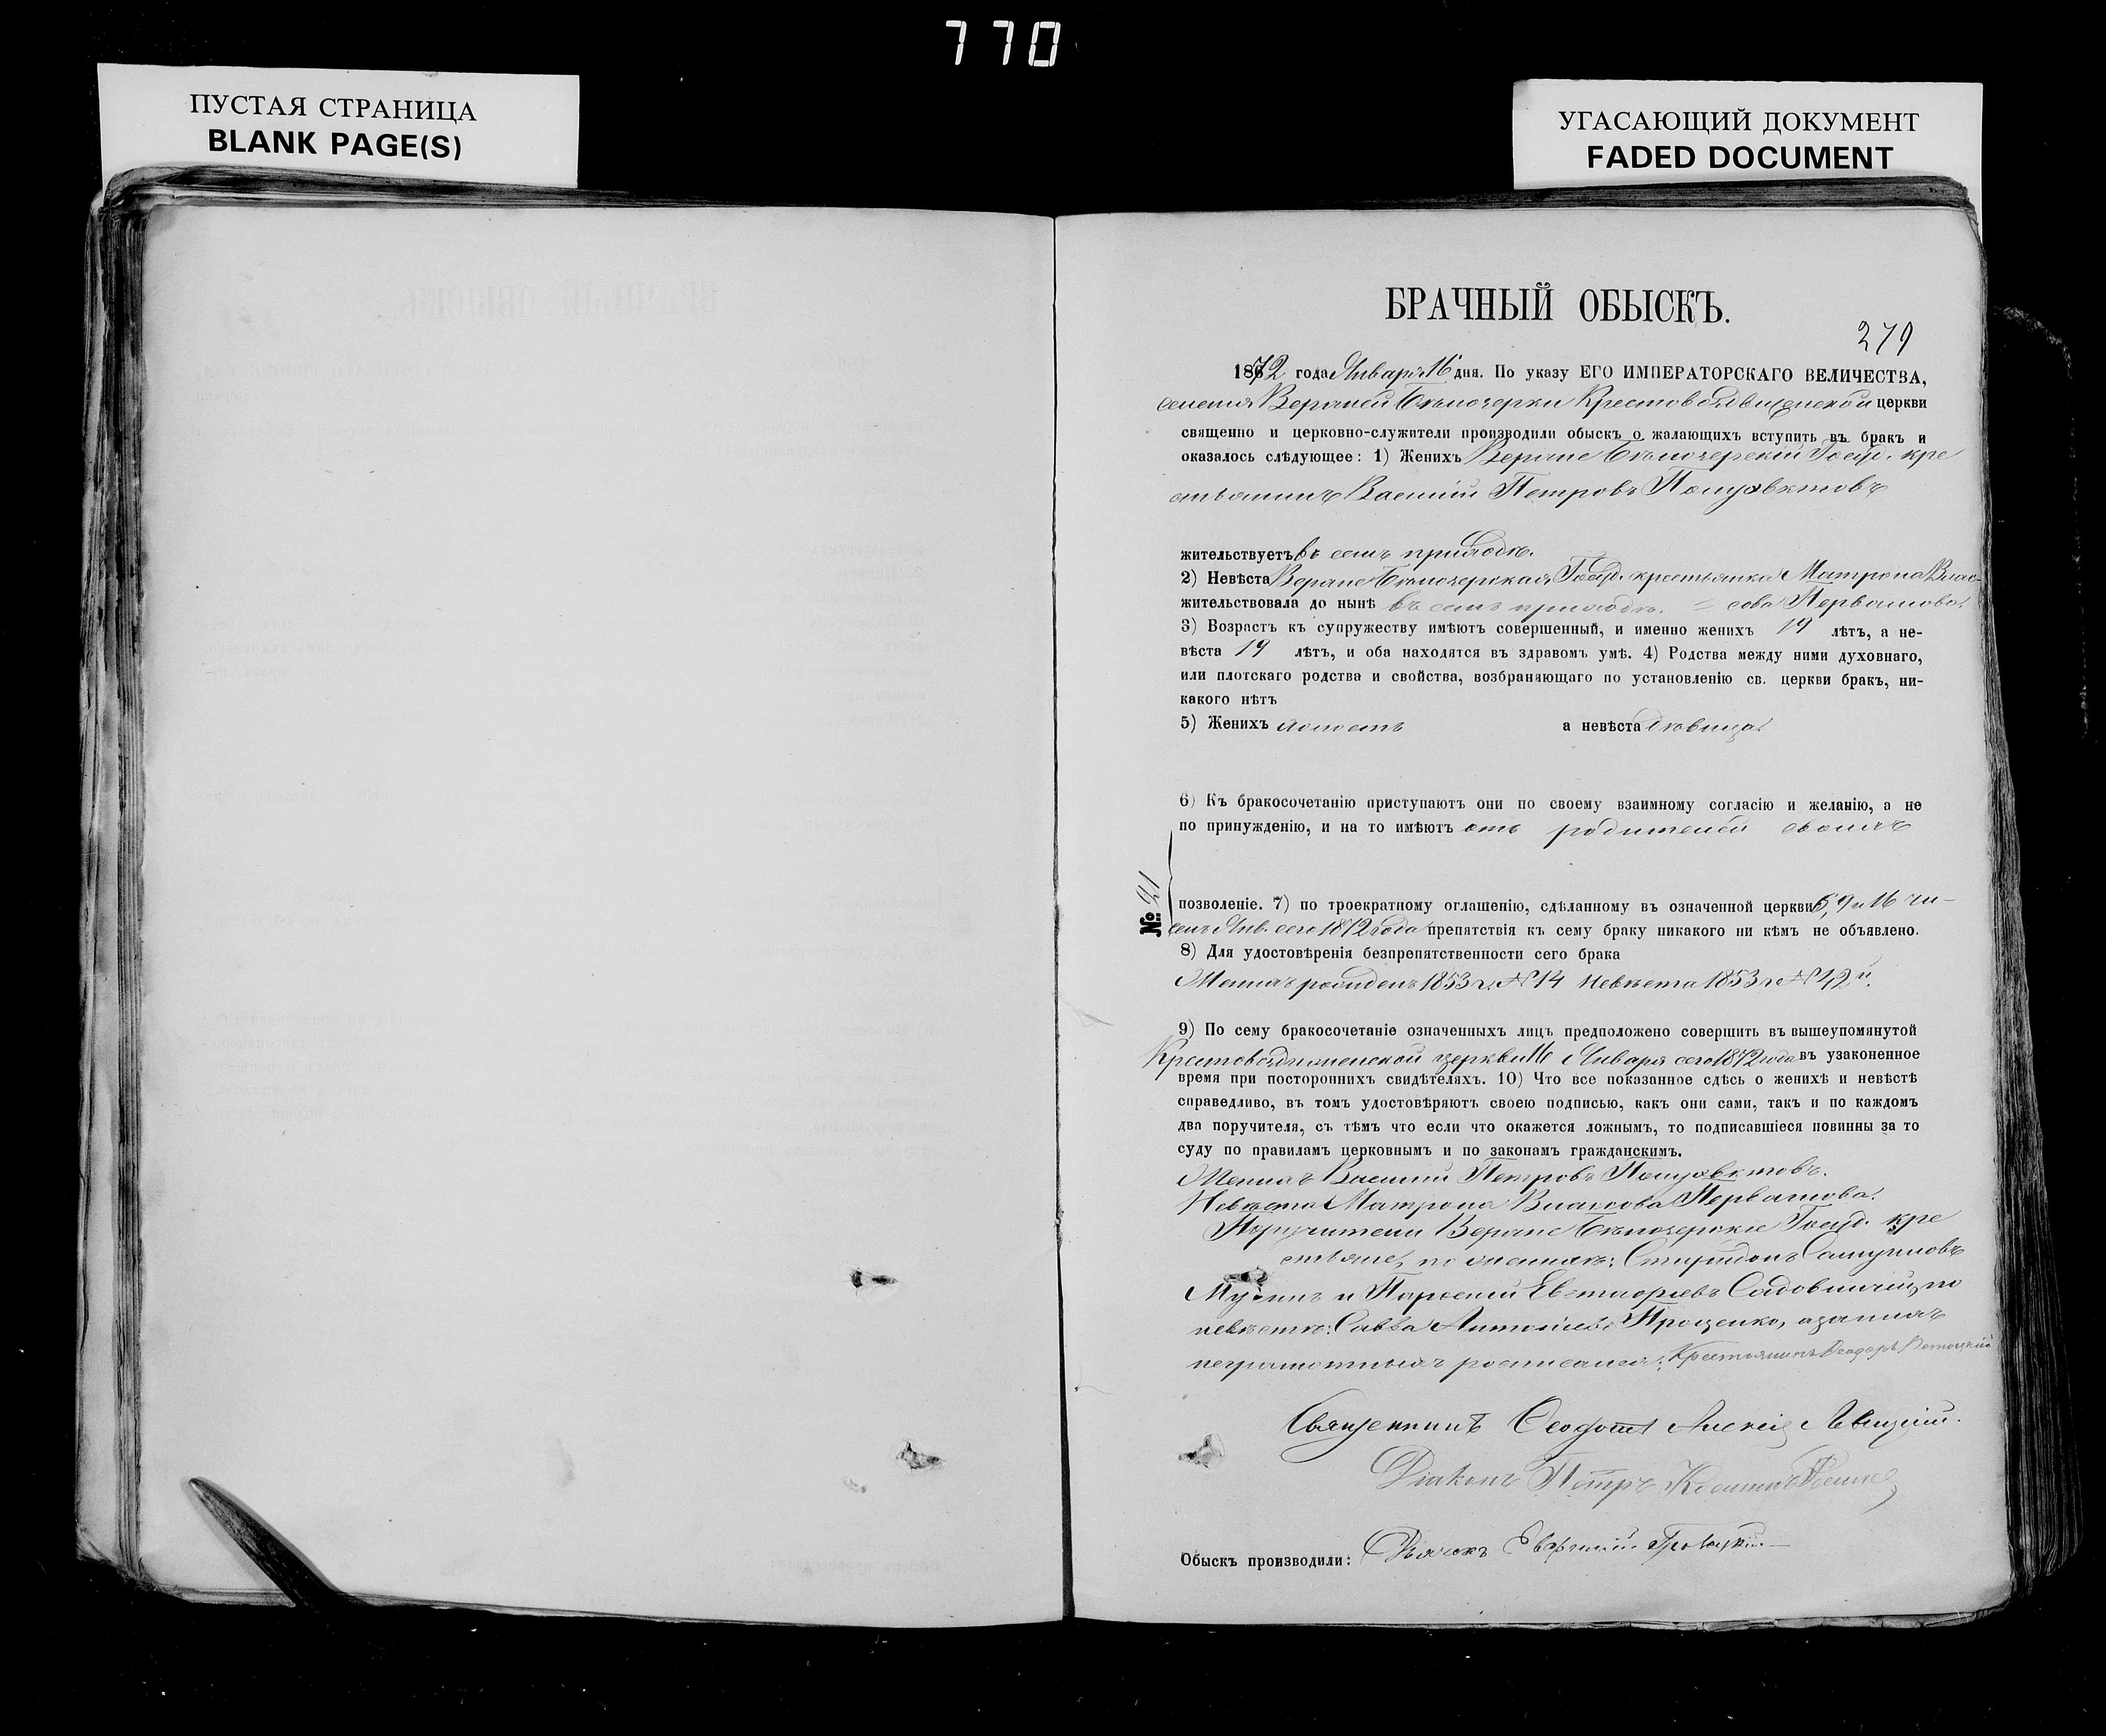 770
ПУСТАЯ СТРАНИЦА
BLANK PAGE(S)
УГАСАЮЩИЙ ДОКУМЕНТ
FADED DOCUMENT
БРАЧНЫЙ ОБЫСКЪ.
279
1872 года Января 16 дня. По указу ЕГО ИМПЕРАТОРСКАГО ВЕЛИЧЕСТВА,
селенія Верхней Бѣлозерки Крестовоздвиженской церкви
священно и церковно-служители производили обыскъ о жалающихъ вступить въ бракъ и
оказалось слѣдующее: 1) Женихъ Верхне Бѣлозерскій Госуд. кре
стьянинъ Василій Петровъ Полуэктовъ
жительствуетъ въ семъ приходѣ.
2) Невѣста Верхне Бѣлозерская Госуд. крестьянка Матрона Влас-
жительствовала до нынѣ въ семъ приходѣ. = сова Первашова.
3) Возрастъ къ супружеству имѣютъ совершенный, и именно женихъ 19 лѣтъ, а не-
вѣста 19 лѣтъ, и оба находятся въ здравомъ умѣ. 4) Родства между ними духовнаго,
или плотскаго родства и свойства, возбраняющаго по установленію св. церкви бракъ, ни-
какого нѣтъ
5) Женихъ холостъ а невѣста дѣвица.
6) Къ бракосочетанію приступаютъ они по своему взаимному согласію и желанію, а не
по принужденію, и на то имѣютъ отъ родителей своихъ
№ 21
позволеніе. 7) по троекратному оглашенію, сдѣланному въ означенной церкви 6, 9 и 16 чи-
селъ Янв. сего 1872 года препятствія къ сему браку никакого ни кѣмъ не объявлено.
8) Для удостовѣренія безпрепятственности сего брака
Женихъ рожденъ 1853 г. № 14 Невѣста 1853 г. № 42й.
9) По сему бракосочетаніе означенныхъ лицъ предположено совершить въ вышеупомянутой
Крестовоздвиженской церкви 16 Января сего 1872 года въ узаконенное
время при постороннихъ свидѣтеляхъ. 10) Что все показанное сдѣсь о женихѣ и невѣстѣ
справедливо, въ томъ удостовѣряютъ своею подписью, какъ они сами, такъ и по каждомъ
два поручителя, съ тѣмъ что если что окажется ложнымъ, то подписавшіеся повинны за то
суду по правиламъ церковнымъ и по законамъ гражданскимъ.
Женихъ Василій Петровъ Полуэктовъ.
Невѣста Матрона Власова Первашова.
Поручители Верхне Бѣлозерскіе Госуд. кре
стьяне, по женихѣ: Спиридонъ
и Евстафіевъ Садовничій, по
невѣстѣ: Савва Проценко, а за нихъ
неграмотныхъ росписался: Крестьянинъ Ѳеодоръ
Священникъ Алексій Левицкій.
Діаконъ Петръ
Обыскъ производили: Дьячокъ